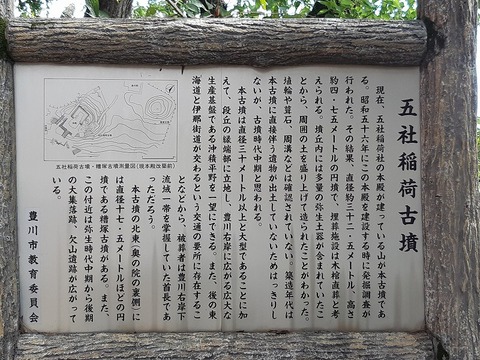 五社稲荷古墳
現在、五社稲荷社の本殿が建っている山が本古墳であ
る。昭和五十六年にこの本殿を建設する時に発掘調査が
行われた。その結果、直径約三十二・五メートル、高さ
約四・七五メートルの円墳で、埋葬施設は木棺直葬と考
えられる。墳丘内には多量の弥生土器が含まれていたこ
とから、周囲の土を盛り上げて造られたことがわかった。
埴輪や葺石、周溝などは確認されていない。築造年代は
本古墳に直接伴う遺物が出土していないためはっきりし
ないが、古墳時代中期と思われる。
本古墳は直径三十メートル以上と大型であることに加
えて、段丘の縁端部に立地し、豊川右岸に広がる広大な
生産基盤である沖積平野を一望にできる。また、後の東
海道と伊那街道が交わるという交通の要所に存在するこ
となどから、被葬者は豊川右岸下
流域一帯を掌握していた首長であ
ったろう。
本古墳の北東（奥の院の裏側）に
は直径十七・五メートルほどの円
墳である糟塚古墳がある。また、
この付近は弥生時代中期から後期
の大集落跡、欠山遺跡が広がって
いる。
豊川市教育委員会
五社稲荷古墳・糟塚古墳測量図（現本殿改築前）